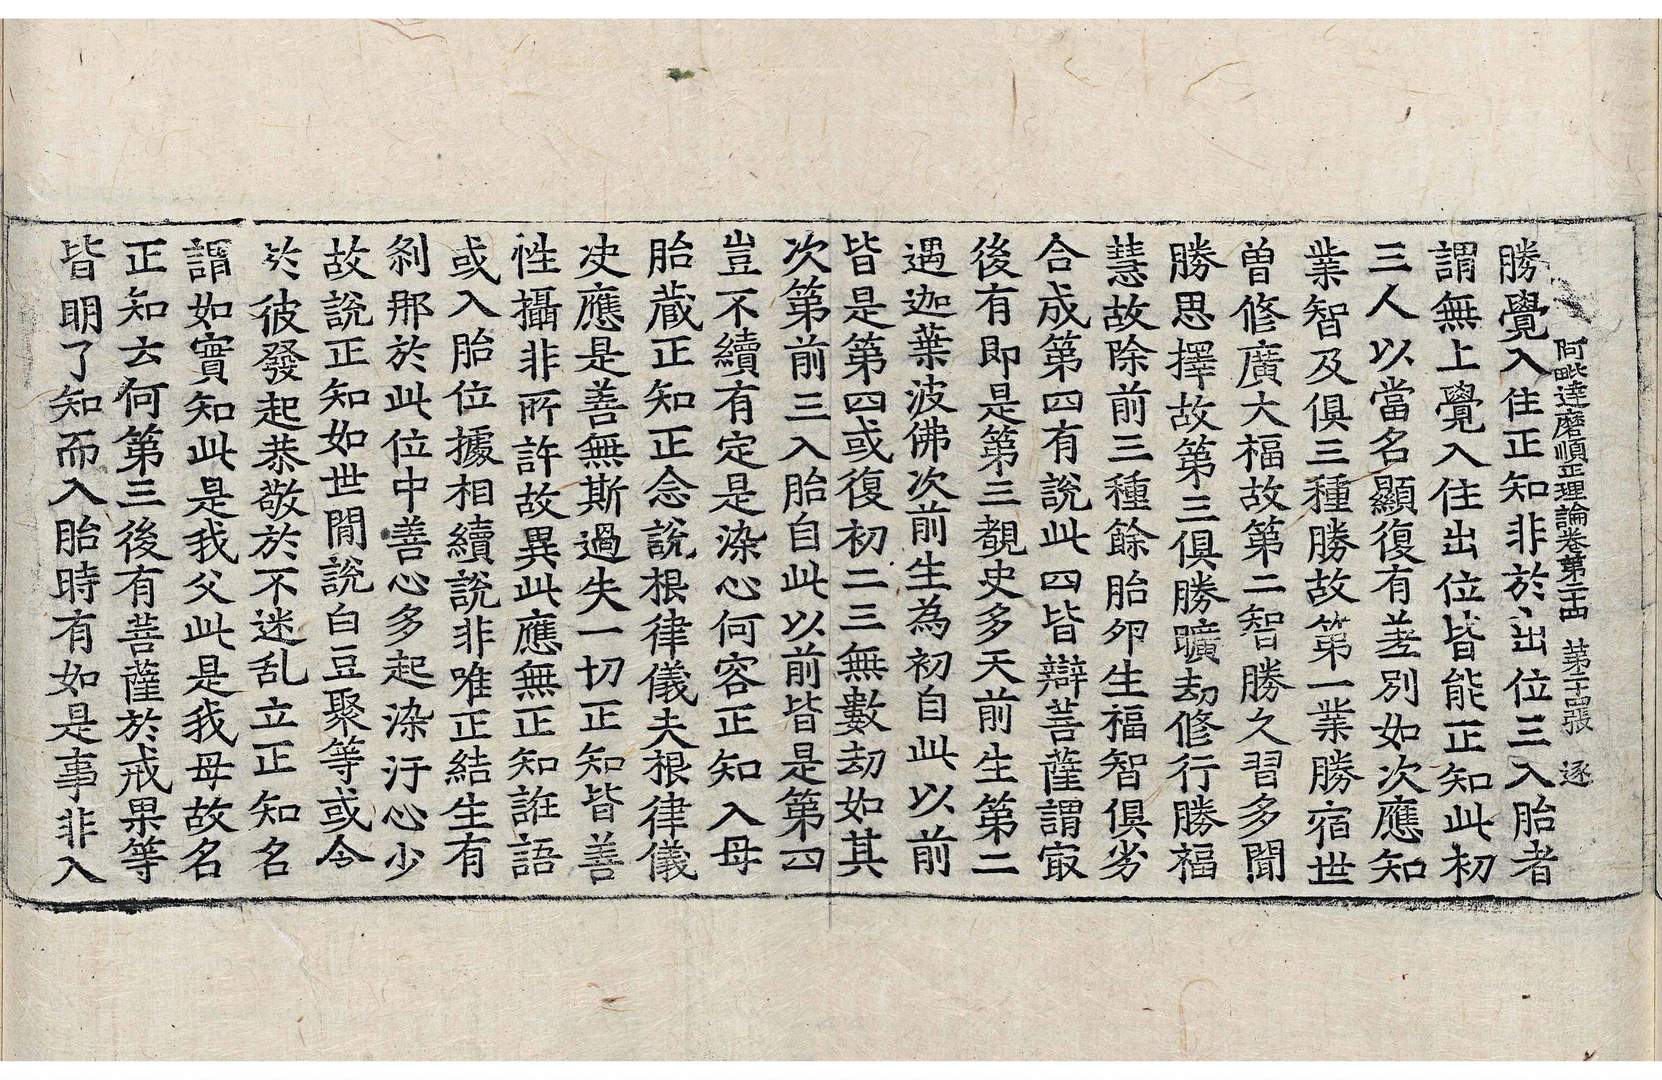 阿毗達磨順正理論卷第二十四 第二十四張 逐
勝覺入住正知非於出位三入胎者
謂無上覺入住出位皆能正知此初
三人以當名顯復有差別如次應知
業智及俱三種勝故第一業勝宿世
曾修廣大福故第二智勝久習多聞
勝思擇故第三俱勝曠劫修行勝福
慧故除前三種餘胎卵生福智俱劣
合成第四有說此四皆辯菩薩謂㝡
後有即是第三覩史多天前生第二
遇迦葉波佛次前生為初自此以前
皆是第四或復初二三無數劫如其
次第前三入胎自此以前皆是第四
豈不續有定是染心何容正知入母
胎藏正知正念說根律儀夫根律儀
决應是善無斯過失一切正知皆善
性攝非所許故異此應無正知誑語
或入胎位據相續說非唯正結生有
剎那於此位中善心多起染汙心少
故說正知如世間說白豆聚等或今
於彼發起恭敬於不迷乱立正知名
謂如實知此是我父此是我母故名
正知云何第三後有菩薩於戒果等
皆明了知而入胎時有如是事非入